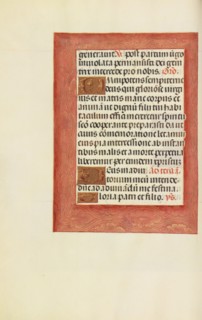 generaut. V. post partum virgo
inviolata permansisti dei geni
trix intercede pro nobis. Oro.
Omnipotens sempiterne
deus qui gloriose virgi
nis et matris marie corpus et
anima ut dignum filii tui habi
taculum effici mereretur spiritu
sco cooperante preparasti da ut
cuius commemoratione letamur
eius pia intercessione ab instan
tibus malis et a morte perpetua
liberemur per eundem xpristum
Deus in adiu Ad tercia.
torium meum inten
de Domine ad adiuuandum me festina.
Gloria patri et filio. ys